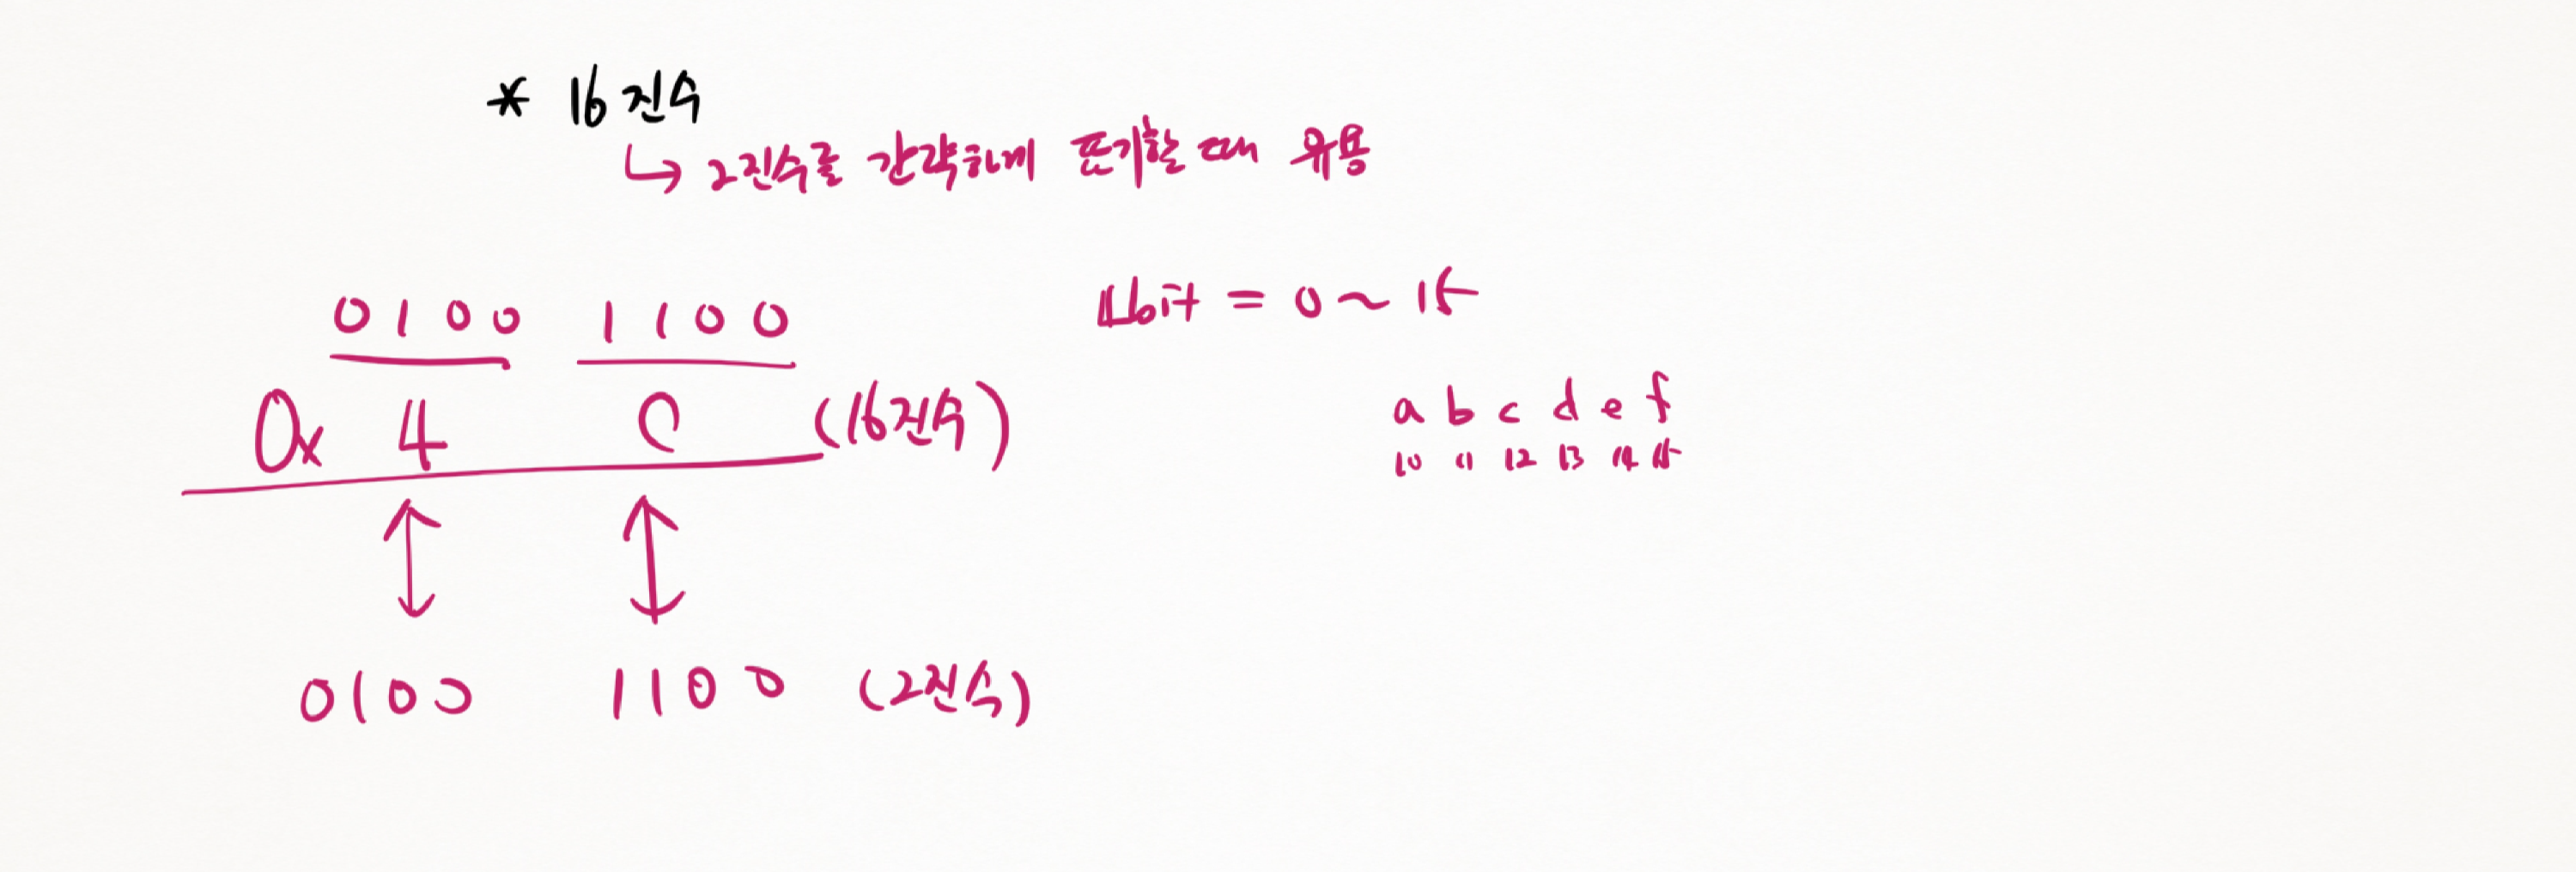 * 16진수
↳ 2진수를 간략하게 표기할 때 유용
0100 1100
0x 4 C (16진수)
0100 1100 (2진수)
4bit = 0 ~ 15
a b c d e f
10 11 12 13 14 15